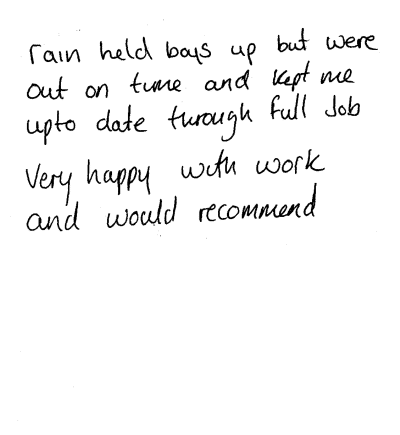 rain held boys up but were
out on time and kept me
upto date through full Job
Very happy with work
and would recommend